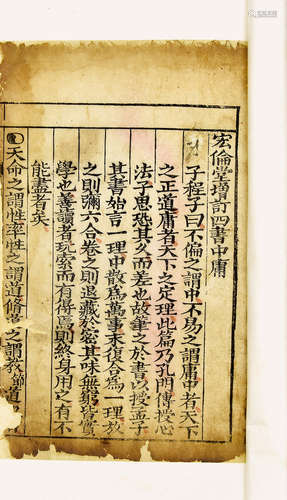 宏倫堂增訂四書中庸
子程子曰不偏之謂中不易之謂庸中者天下
之正道庸者天下之定理此篇乃孔門傳授心
法子思恐其久而差也故筆之於書以授孟子
其書始言一理中散為萬事末復合為一理放
之則彌六合卷之則退藏於密其味無窮皆實
學也善讀者玩索而有得焉則終身用之有不
能盡者矣
天命之謂性率性之謂道脩道之謂教